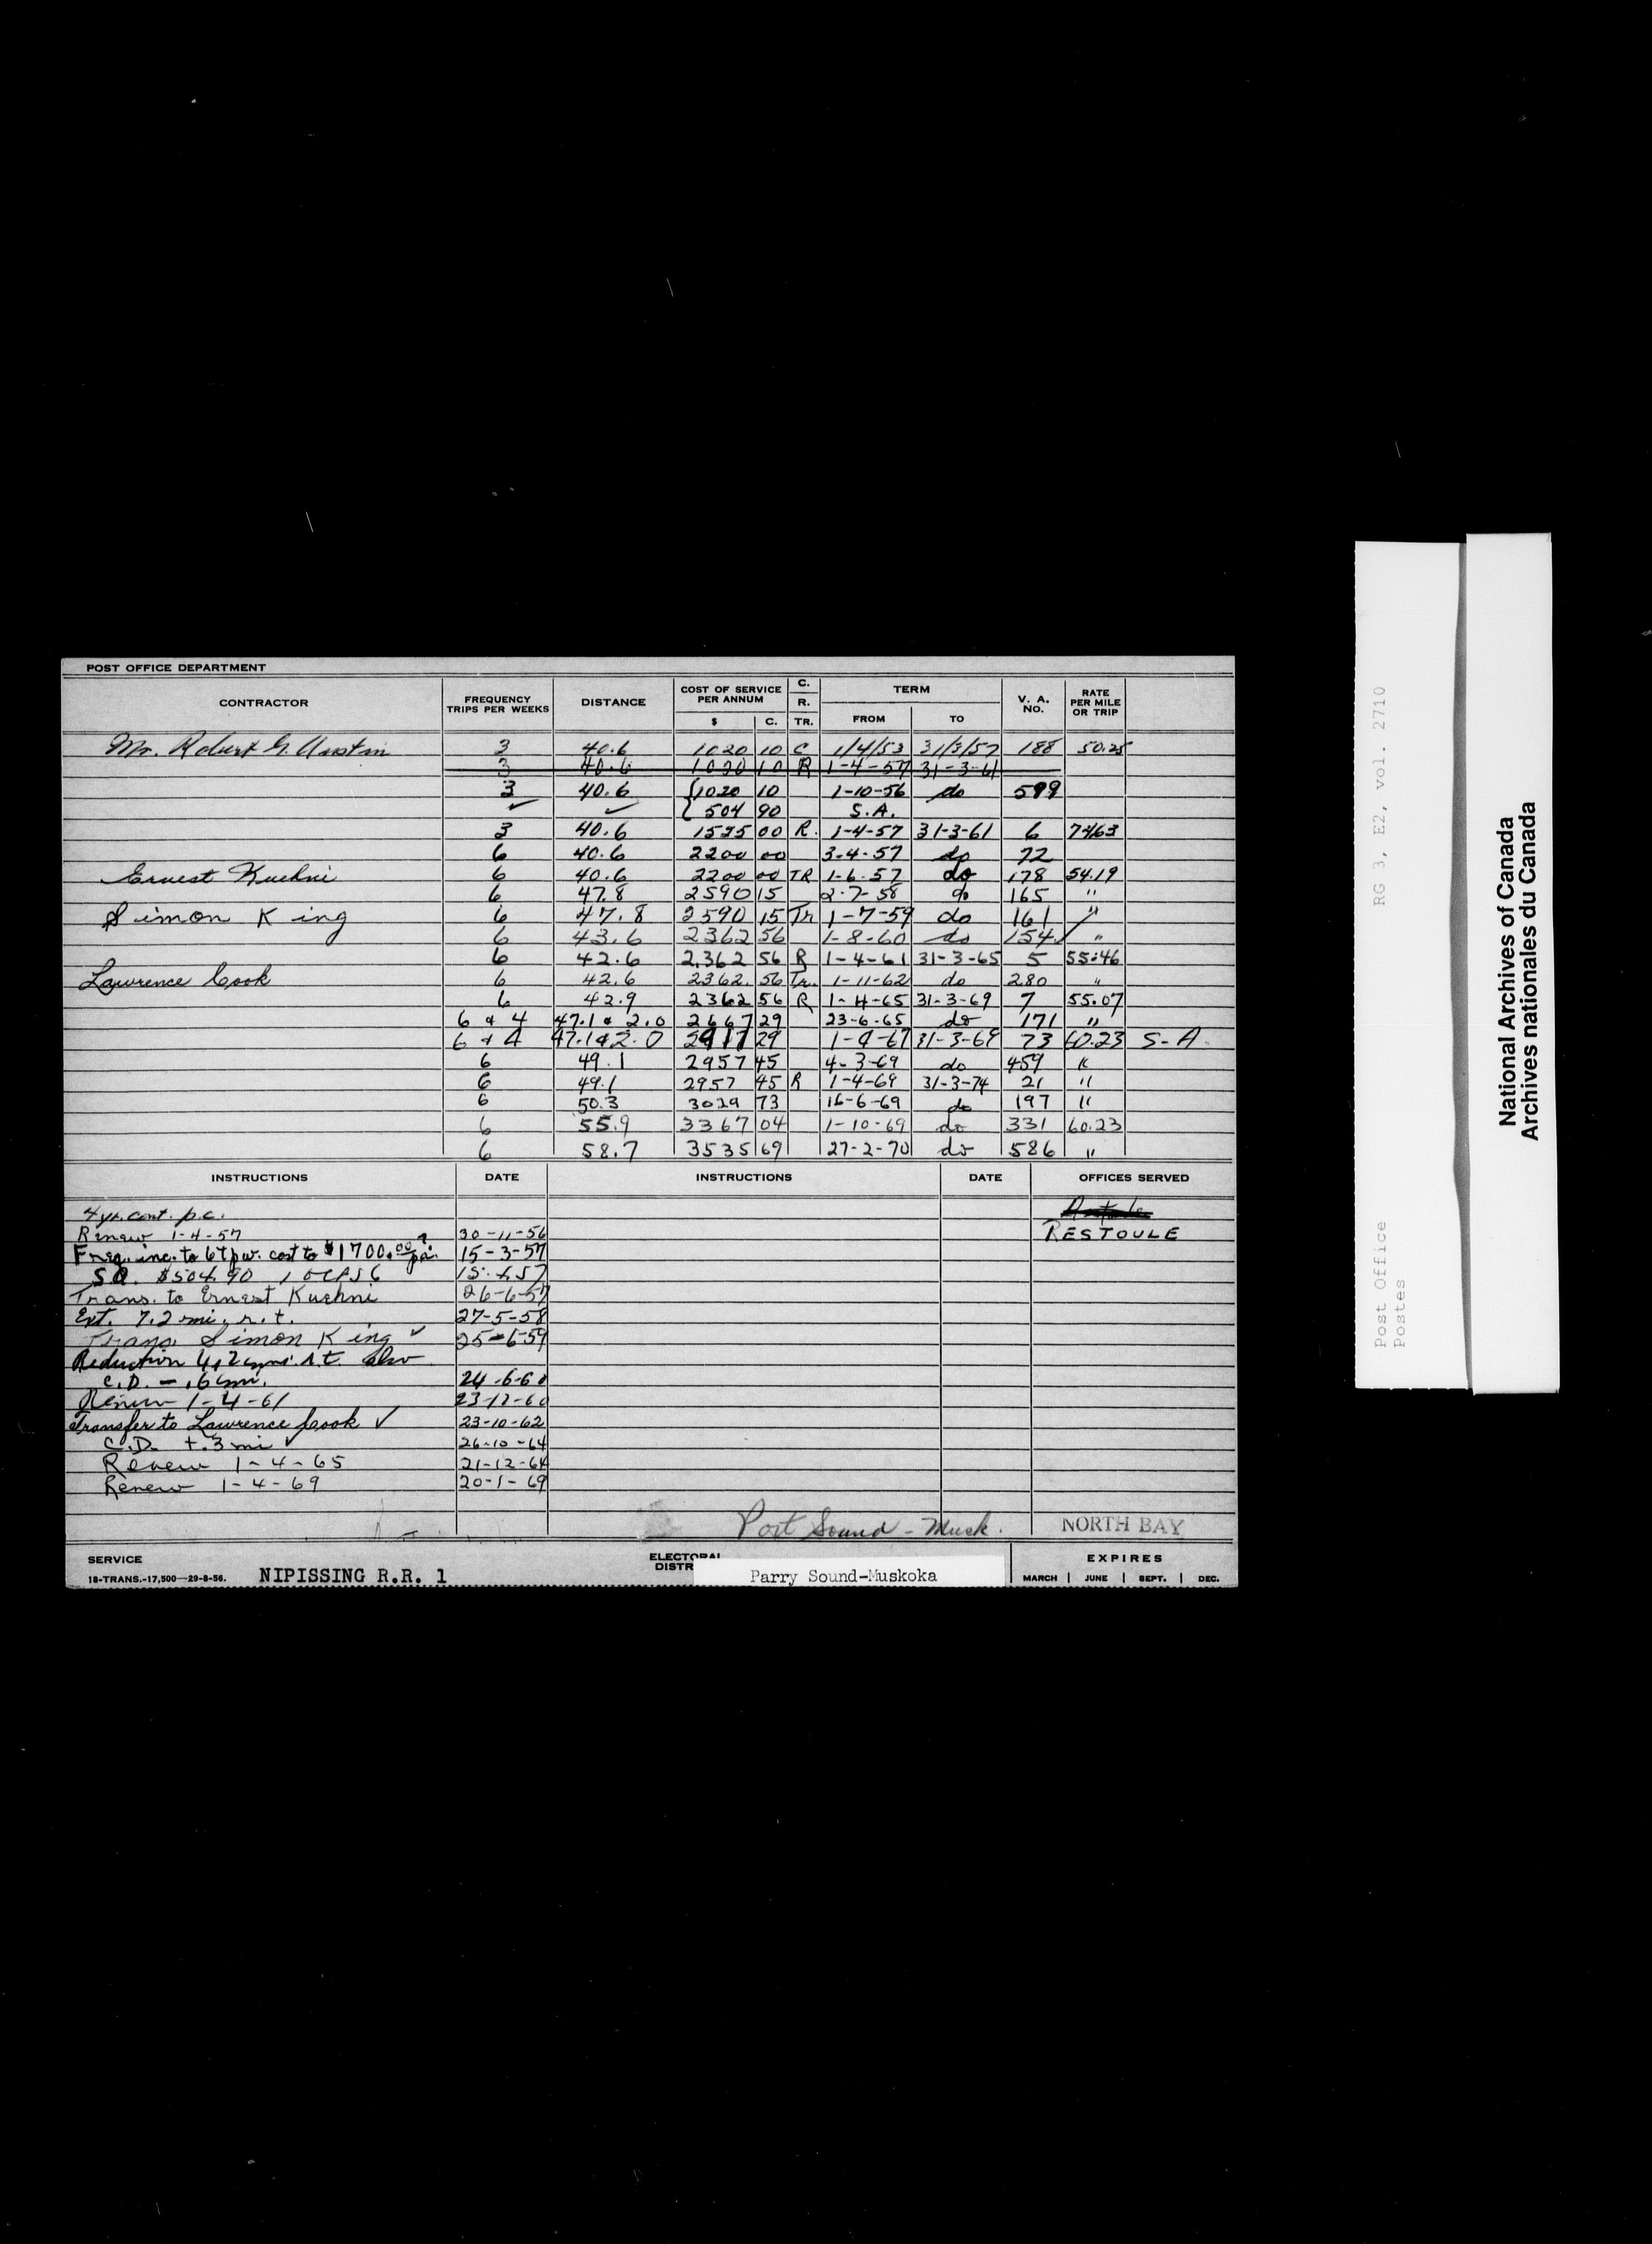 POST OFFICE DEPARTMENT
CONTRACTOR FREQUENCY TRIPS PER WEEKS DISTANCE COST OF SERVICE PER ANNUM $ C. C. R. TR. TERM FROM TO V. A. NO. RATE PER MILE OR TRIP
Mr. Robert G. Austin 3 40.6 1020 10 C 1/4/53 31/3/57 188 50.25
3 40.6 1020 10 R 1-4-57 31-3-61
3 40.6 {1020 10 1-10-56 do 599
✓ ✓ { 504 90 S.A.
3 40.6 1525 00 R. 1-4-57 31-3-61 6 7463
6 40.6 2200 00 3-4-57 do 72
Ernest Kuehni 6 40.6 2200 00 TR 1-6-57 do 178 54.19
6 47.8 2590 15 2-7-58 do 165 "
Simon King 6 47.8 2590 15 Tr 1-7-59 do 161 "
6 43.6 2362 56 1-8-60 do 154 "
6 42.6 2,362 56 R 1-4-61 31-3-65 5 55.46
Lawrence Cook 6 42.6 2362. 56 Tr. 1-11-62 do 280 "
6 42.9 2362 56 R 1-4-65 31-3-69 7 55.07
6 & 4 47.1 & 2.0 2667 29 23-6-65 do 171 "
6 & 4 47.1 & 2.0 2917 29 1-9-67 31-3-69 73 60.23 S-A.
6 49.1 2957 45 4-3-69 do 459 "
6 49.1 2957 45 R 1-4-69 31-3-74 21 "
6 50.3 3029 73 16-6-69 do 197 "
6 55.9 3367 04 1-10-69 do 331 60.23
6 58.7 3535 69 27-2-70 do 586 "
INSTRUCTIONS DATE INSTRUCTIONS DATE OFFICES SERVED
4 yr. cont. p.c.
Renew 1-4-57 30-11-56 RESTOULE
Freq. inc. to 6 t.p.w. cost to $1700.00 p.a. ? 15-3-57
SA. $504.90 1 Oct 56
Trans. to Ernest Kuehni 26-6-57
Ext. 7.2 mi. r.t. 27-5-58
Trans. Simon King ✓ 25-6-59
Reduction 4.2 mi. r.t. also
C.D. - .6 mi. 24-6-60
Renew 1-4-61 23-12-60
Transfer to Lawrence Cook ✓ 23-10-62
C.D. +.3 mi ✓ 26-10-64
Renew 1-4-65 21-12-64
Renew 1-4-69 20-1-69
Port Sound - Musk. NORTH BAY
SERVICE ELECTORAL DISTR EXPIRES
18-TRANS.-17,500—29-8-56. NIPISSING R.R. 1 Parry Sound-Muskoka MARCH | JUNE | SEPT. | DEC.
RG 3, E2, vol. 2710
Post Office
Postes
National Archives of Canada
Archives nationales du Canada